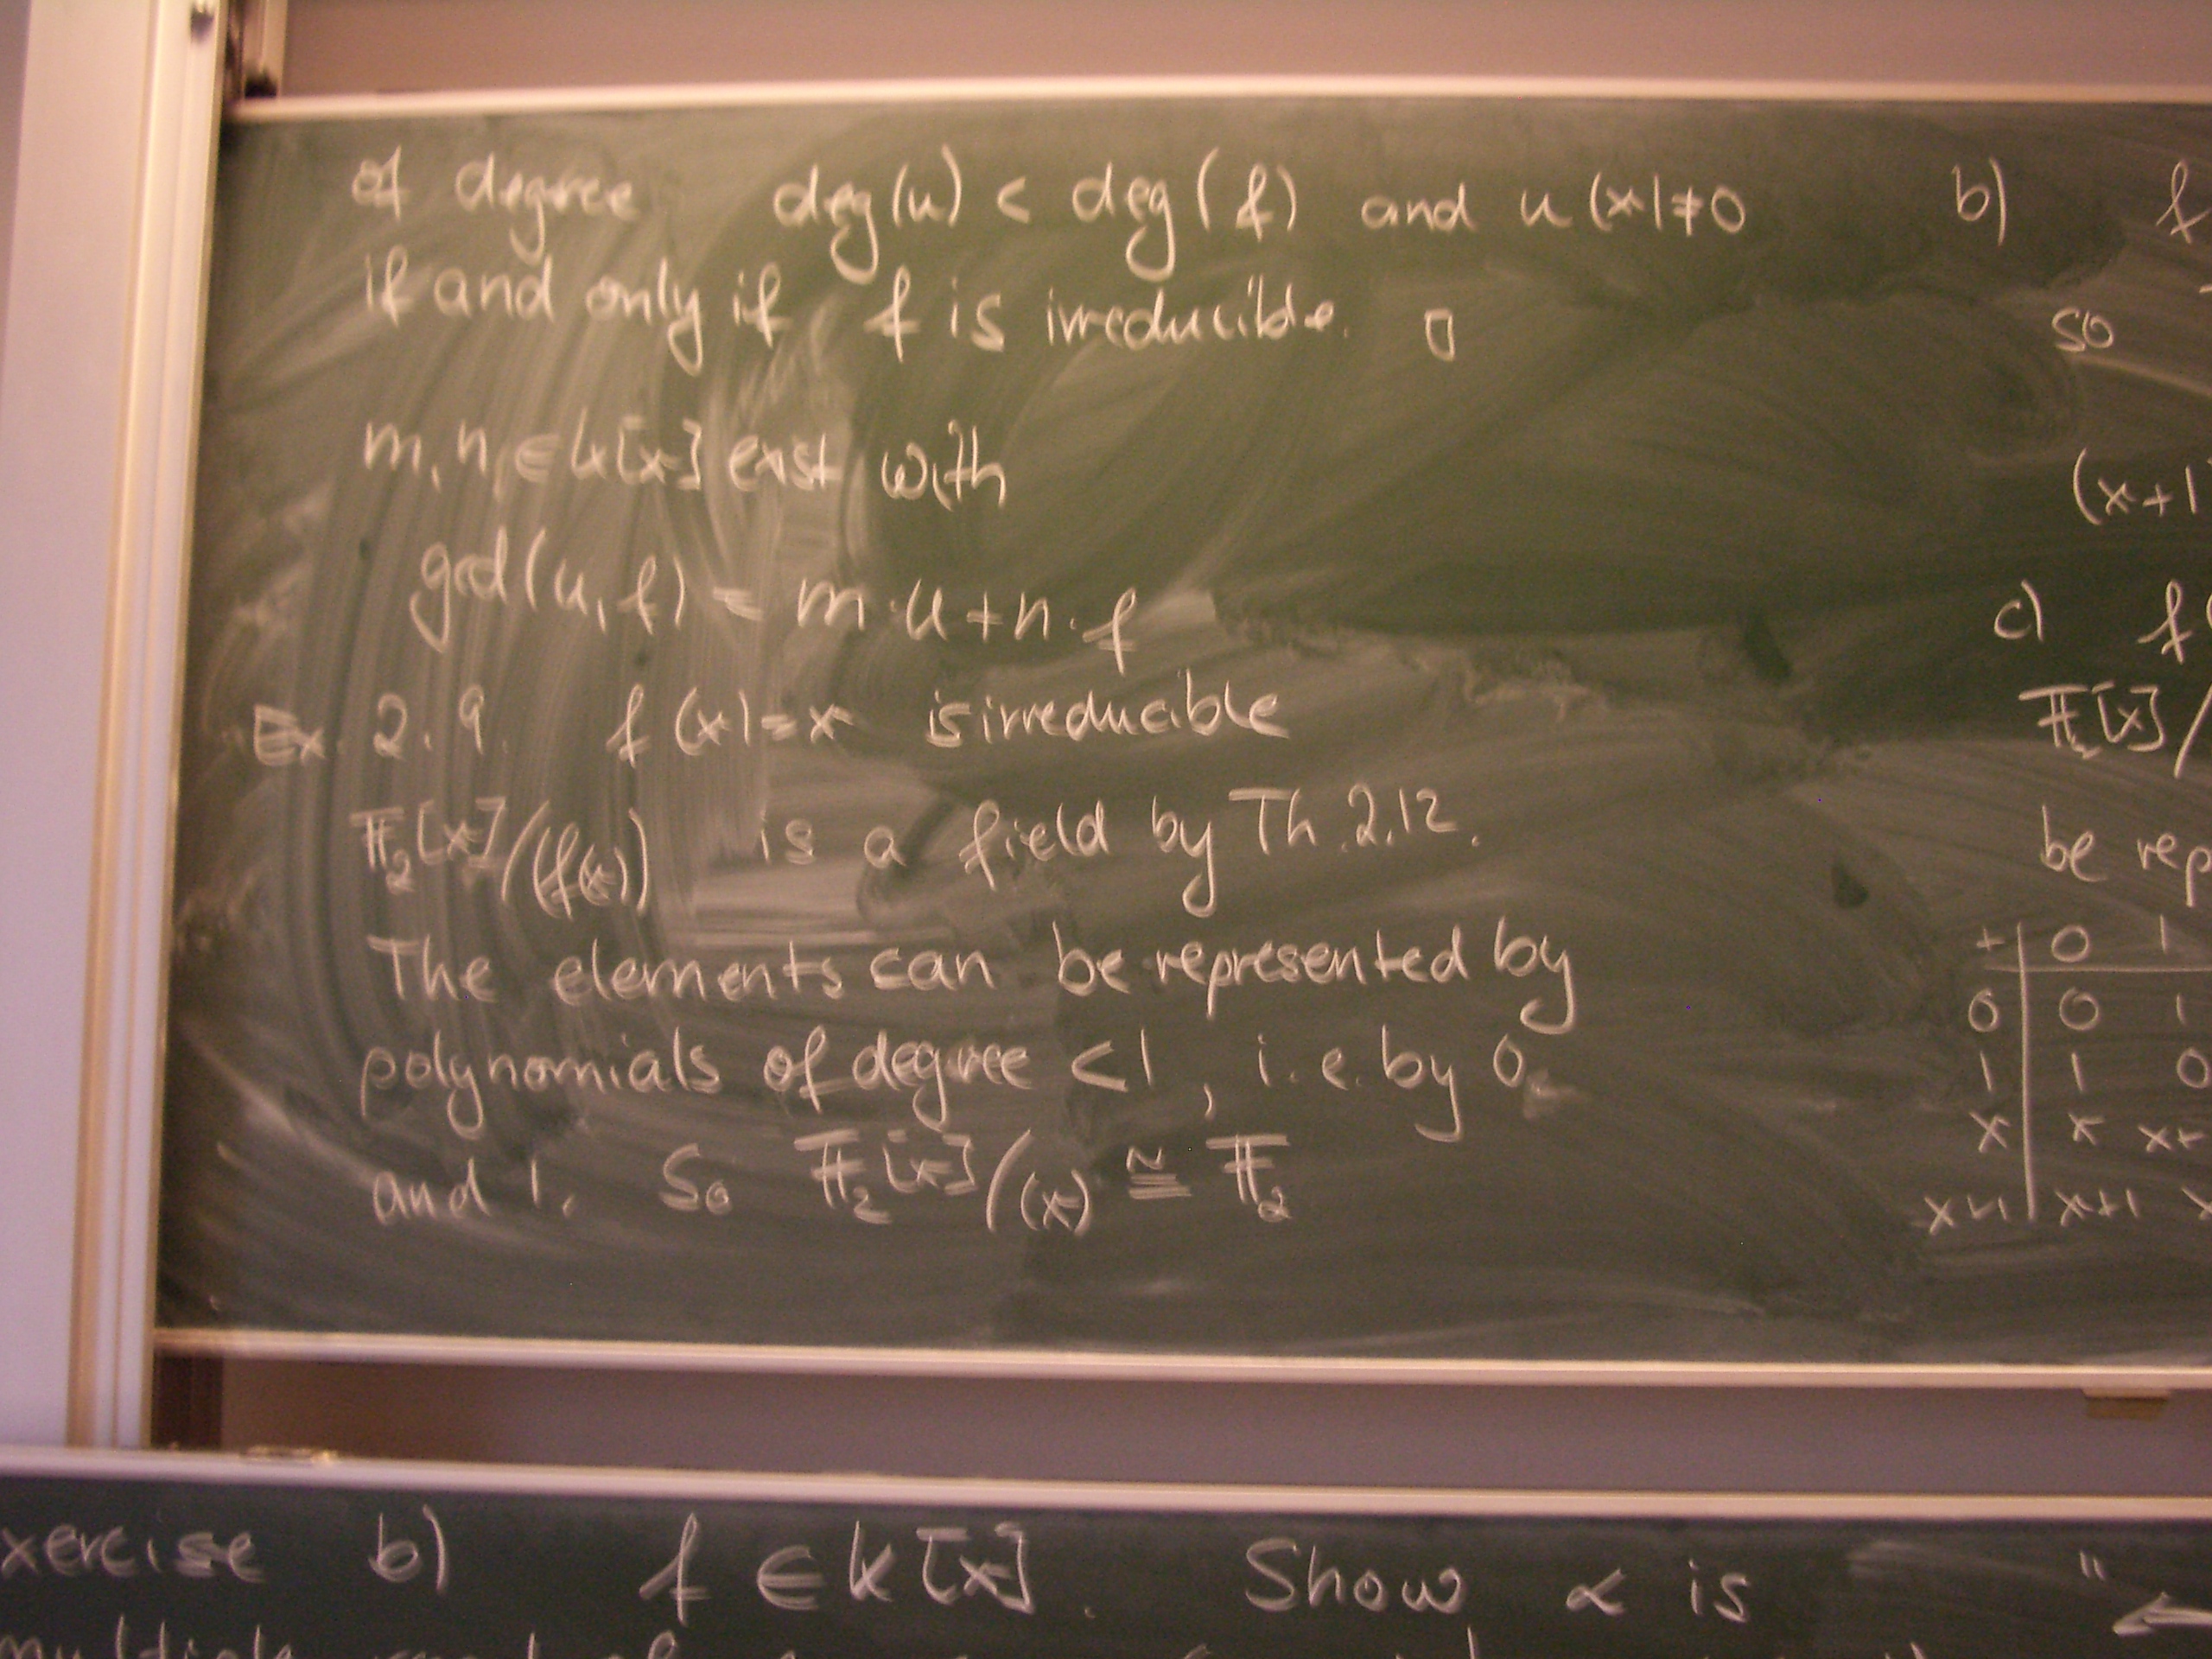 of degree deg(u) < deg(f) and u(x)≠0
if and only if f is irreducible. □
m, n ∈ k[x] exist with
gcd(u, f) = m·u + n·f
Ex. 2.9. f(x)=x is irreducible
𝔽₂[x]/(f(x)) is a field by Th. 2.12.
The elements can be represented by
polynomials of degree <1, i.e. by 0
and 1. So 𝔽₂[x]/(x) ≅ 𝔽₂
b) f
so
(x+1
c) f(
𝔽₂[x]/
be rep
+ | 0 1
0 | 0 1
1 | 1 0
x | x x+
x+1 | x+1 x
xercise b) f ∈ k[x]. Show α is "